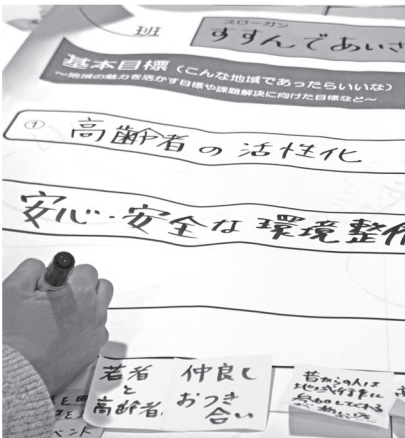 班
スローガン
すすんであいさ
基本目標（こんな地域であったらいいな）
～地域の魅力を活かす目標や課題解決に向けた目標など～
① 高齢者の活性化
安心・安全な環境整備
若者
と
高齢者
仲良し
おつき
合い
昔からの人は
地域行事に
ベント